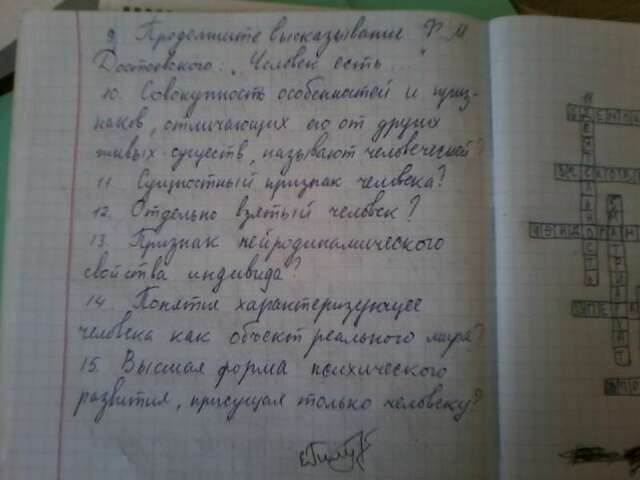 9. Продолжите высказывание Ф.М.
Достоевского: „Человек есть ..."
10. Совокупность особенностей и приз-
наков, отличающих его от других
живых существ, называют человеческой?
11. Сущностный признак человека?
12. Отдельно взятый человек?
13. Признак нейродинамического
свойства индивида?
14. Понятие характеризующее
человека как объект реального мира?
15. Высшая форма психического
развития, присущая только человеку?